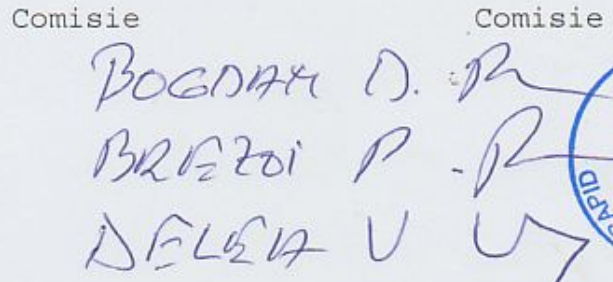 Comisie Comisie
BOGDAN D.
BREZOI P
DELEA V
RAPID